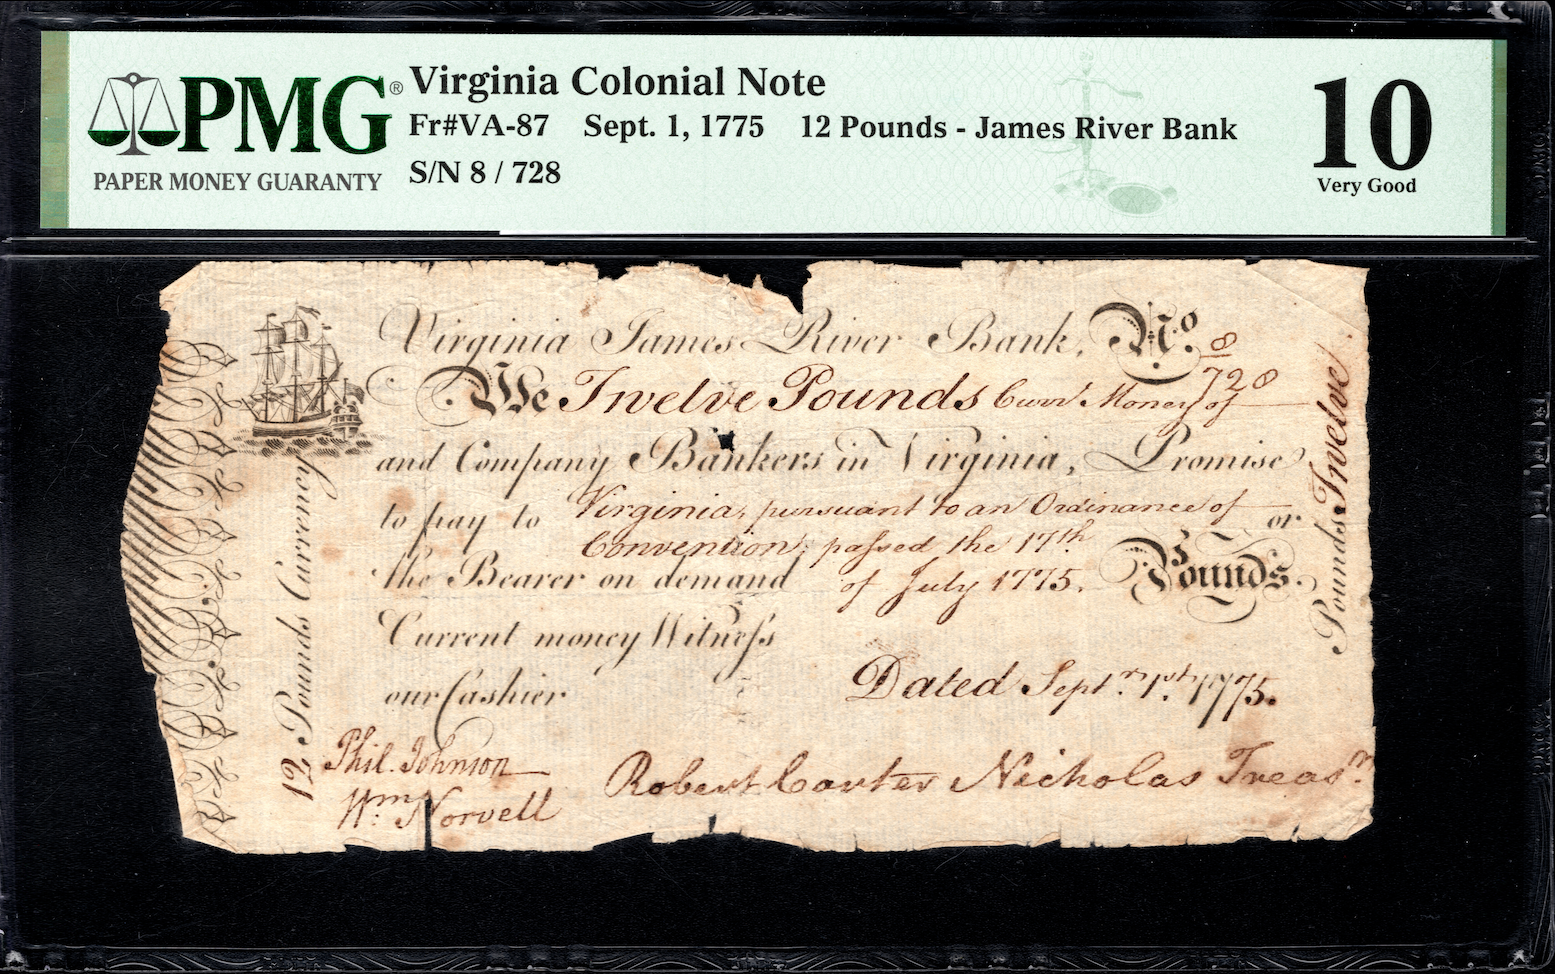 PMG®
PAPER MONEY GUARANTY
Virginia Colonial Note
Fr#VA-87 Sept. 1, 1775 12 Pounds - James River Bank
S/N 8 / 728
10
Very Good
Virginia James River Bank, No. 8
728
We Twelve Pounds Curr.t Money of
and Company Bankers in Virginia, Promise
to pay to Virginia, pursuant to an Ordinance of or
Convention, passed the 17th
the Bearer on demand of July 1775. Pounds.
Current money Witness
our Cashier
Dated Sept.r 1st. 1775.
Phil. Johnson
Wm. Norvell
Robert Carter Nicholas Treas.r
12 Pounds Currency
Pounds Twelve